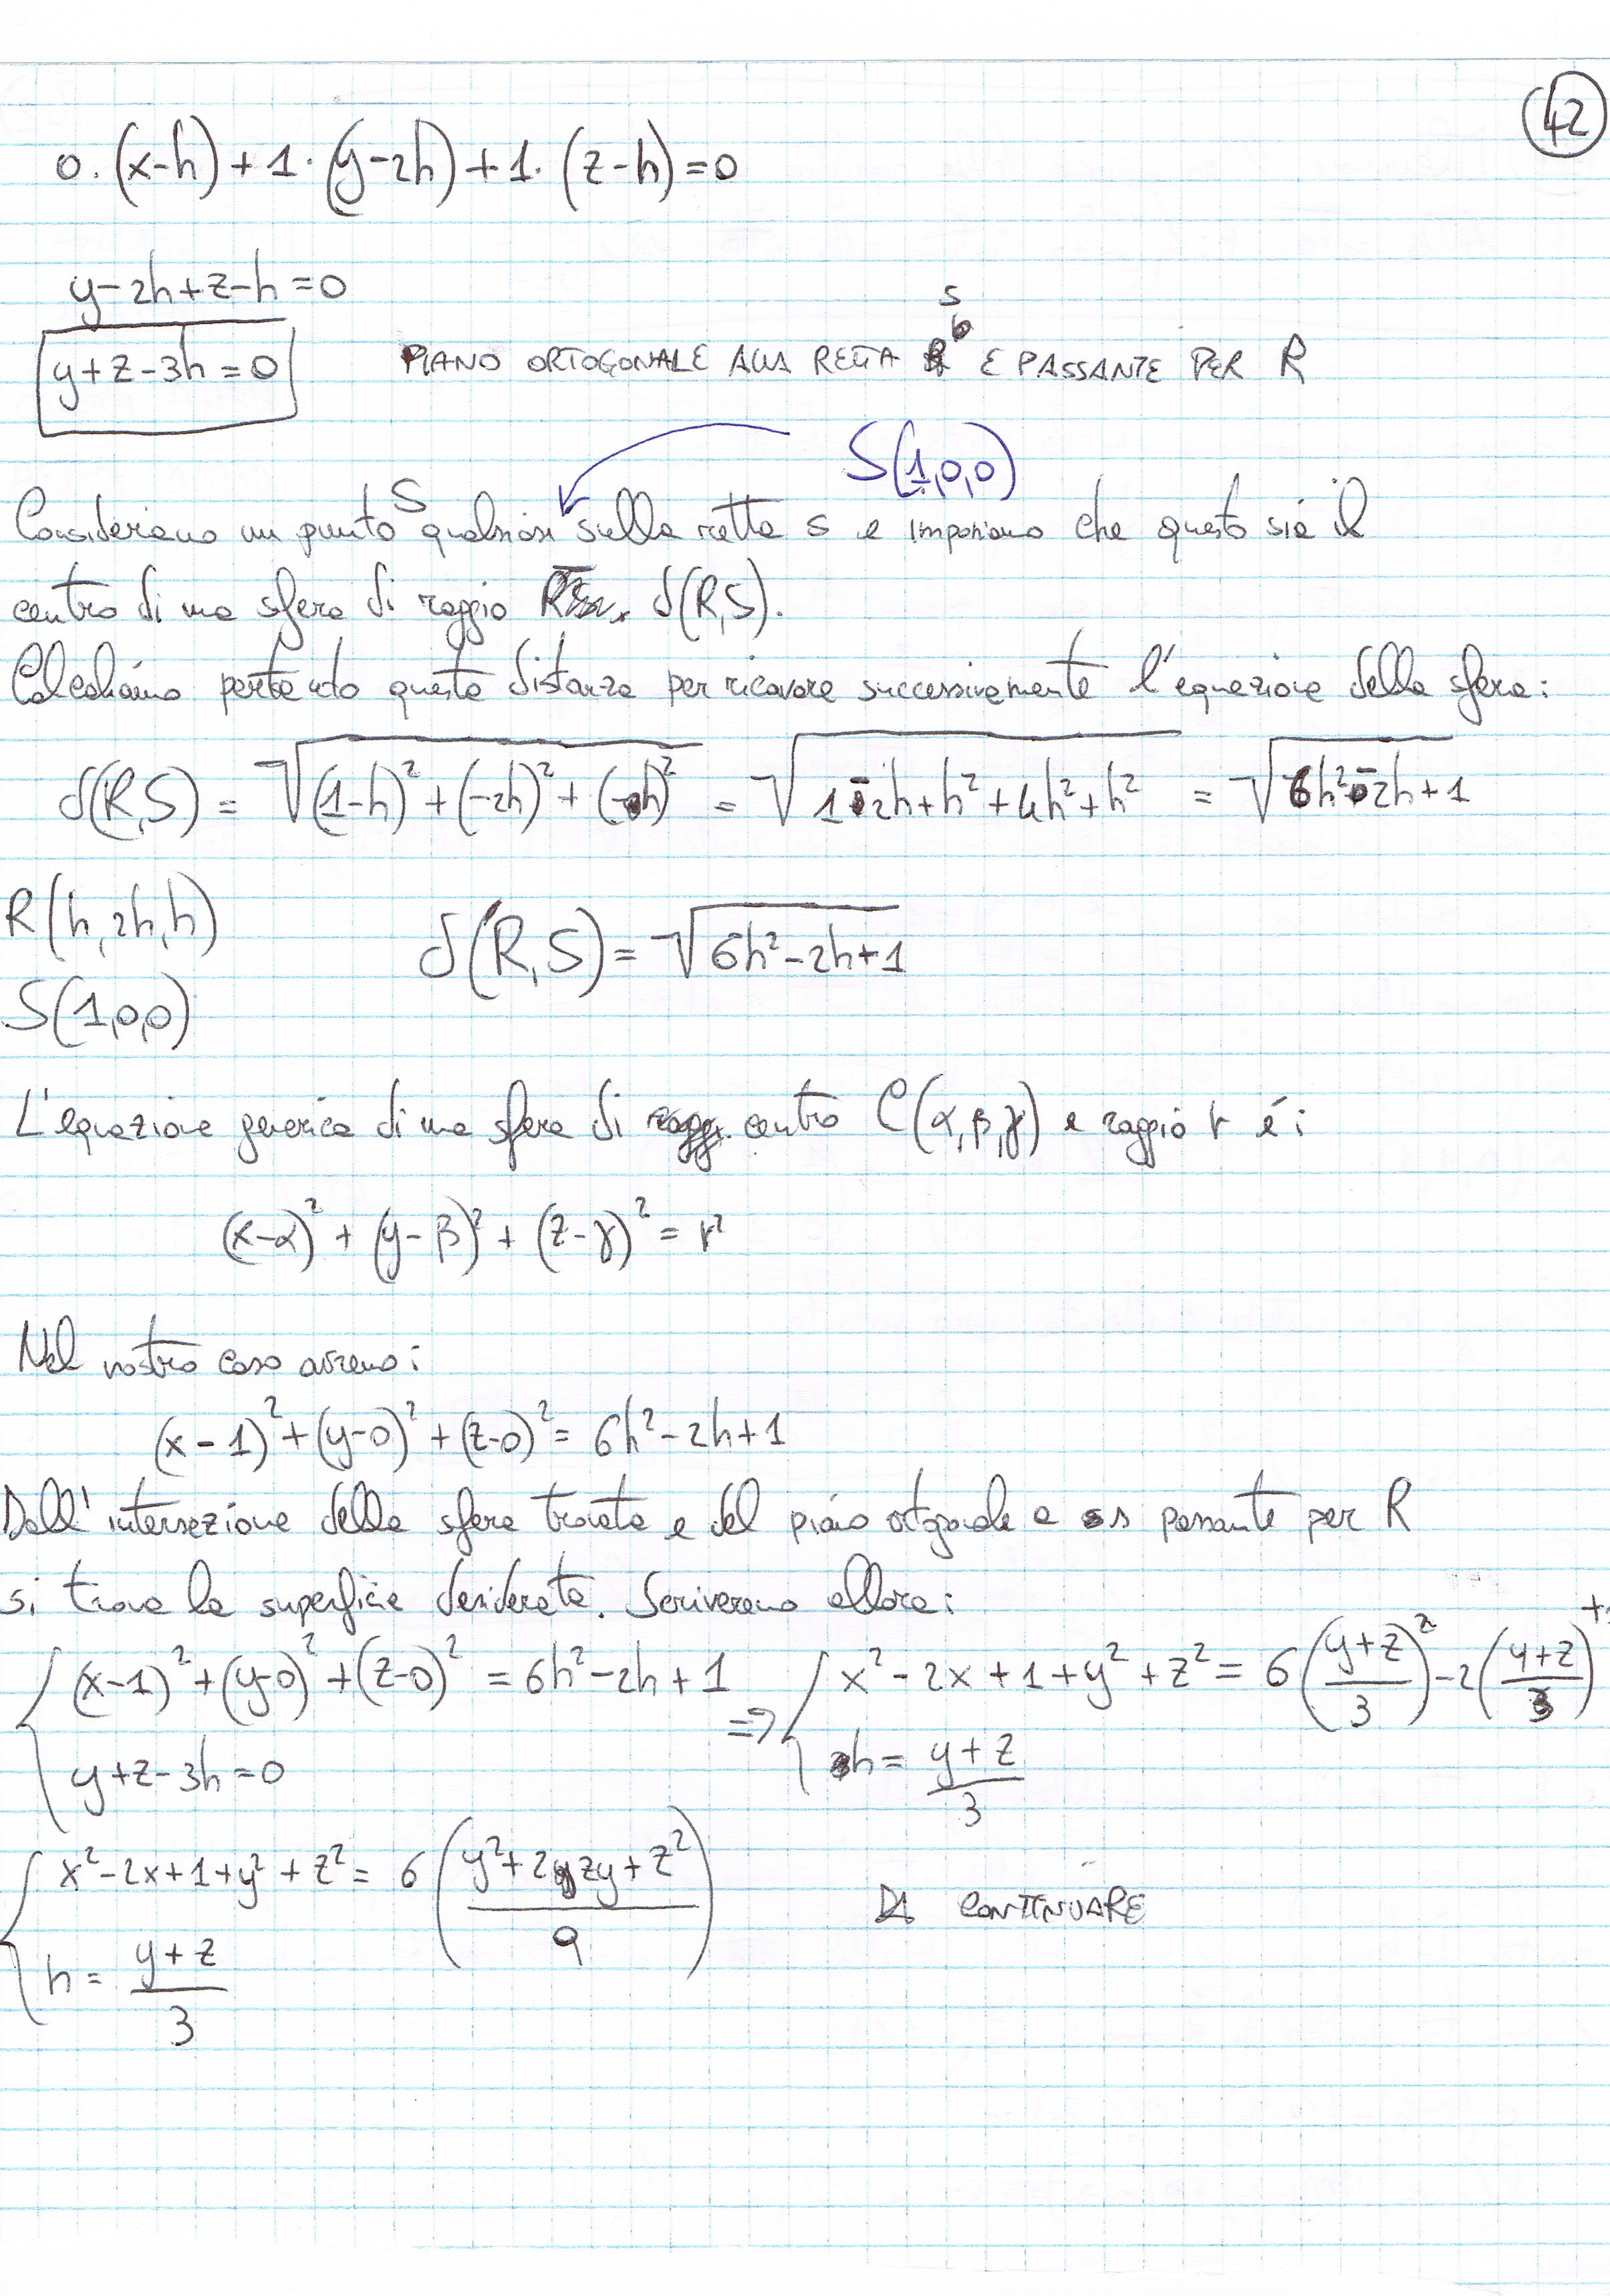 42
0·(x-h)+1·(y-2h)+1·(z-h)=0
y-2h+z-h=0
s
y+z-3h=0 PIANO ORTOGONALE ALLA RETTA E PASSANTE PER R
S(1,0,0)
S
Consideriamo un punto qualsiasi sulla retta s e imponiamo che questo sia il
centro di una sfera di raggio d(R,S).
Calcoliamo pertanto questa distanza per ricavare successivamente l'equazione della sfera:
d(R,S) = √((1-h)²+(-2h)²+(-h)²) = √(1-2h+h²+4h²+h²) = √(6h²-2h+1)
R(h,2h,h)
d(R,S) = √(6h²-2h+1)
S(1,0,0)
L'equazione generica di una sfera di centro C(α,β,γ) e raggio r é:
(x-α)²+(y-β)²+(z-γ)²=r²
Nel nostro caso avremo:
(x-1)²+(y-0)²+(z-0)²=6h²-2h+1
Dall'intersezione della sfera trovata e del piano ortogonale a s passante per R
si trova la superficie desiderata. Scriveremo allora:
{(x-1)²+(y-0)²+(z-0)²=6h²-2h+1 ⇒ {x²-2x+1+y²+z²=6((y+z)/3)²-2((y+z)/3)+
y+z-3h=0 h=(y+z)/3
{x²-2x+1+y²+z²=6((y²+2zy+z²)/9) DA CONTINUARE
h=(y+z)/3